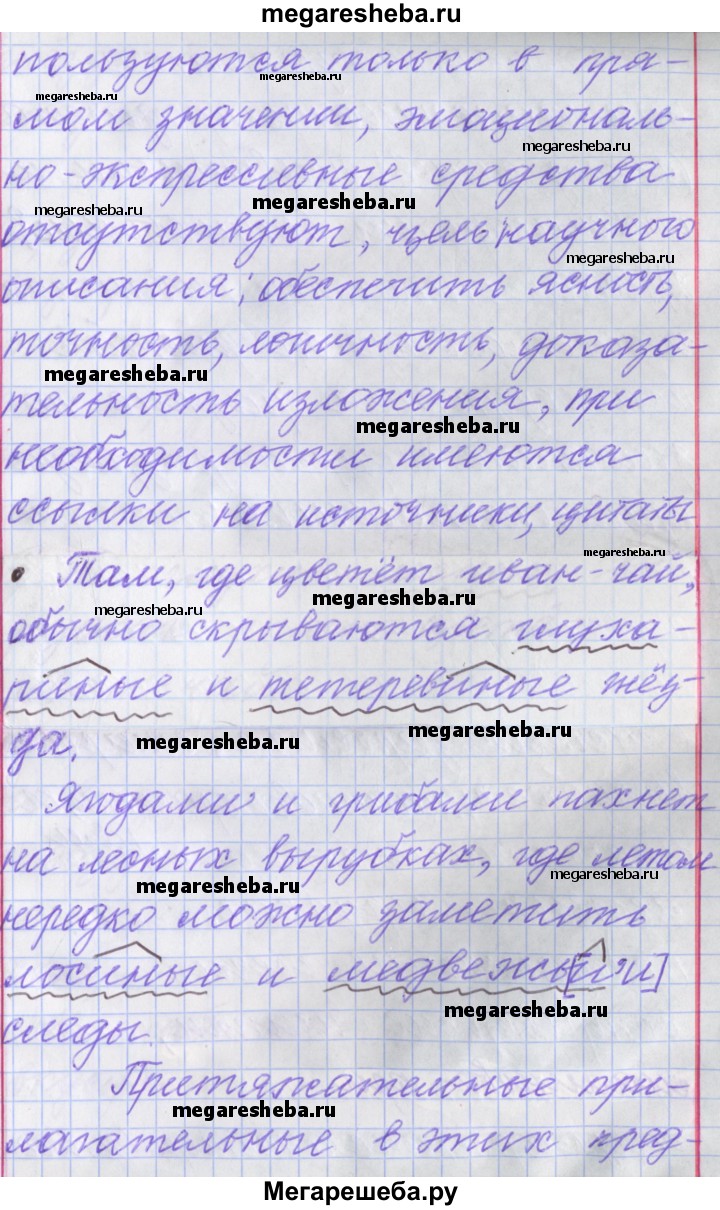 megaresheba.ru
пользуются только в пря-
megaresheba.ru
megaresheba.ru
мом значении, эмоциональ-
megaresheba.ru
но-экспрессивные средства
megaresheba.ru
megaresheba.ru
отсутствуют, цель научного
megaresheba.ru
описания: обеспечить ясность,
точность, логичность, доказа-
megaresheba.ru
тельность изложения, при
megaresheba.ru
необходимости имеются
ссылки на источники, цитаты
megaresheba.ru
• Там, где цветёт иван-чай,
megaresheba.ru
megaresheba.ru
обычно скрываются глуха-
риные и тетеревиные гнёз-
megaresheba.ru
megaresheba.ru
да.
Ягодами и грибами пахнет
на лесных вырубках, где летом
megaresheba.ru
megaresheba.ru
нередко можно заметить
лосиные и медвежьи[й'и]
megaresheba.ru
следы.
Притяжательные при-
megaresheba.ru
лагательные в этих пред-
Мегарешеба.ру